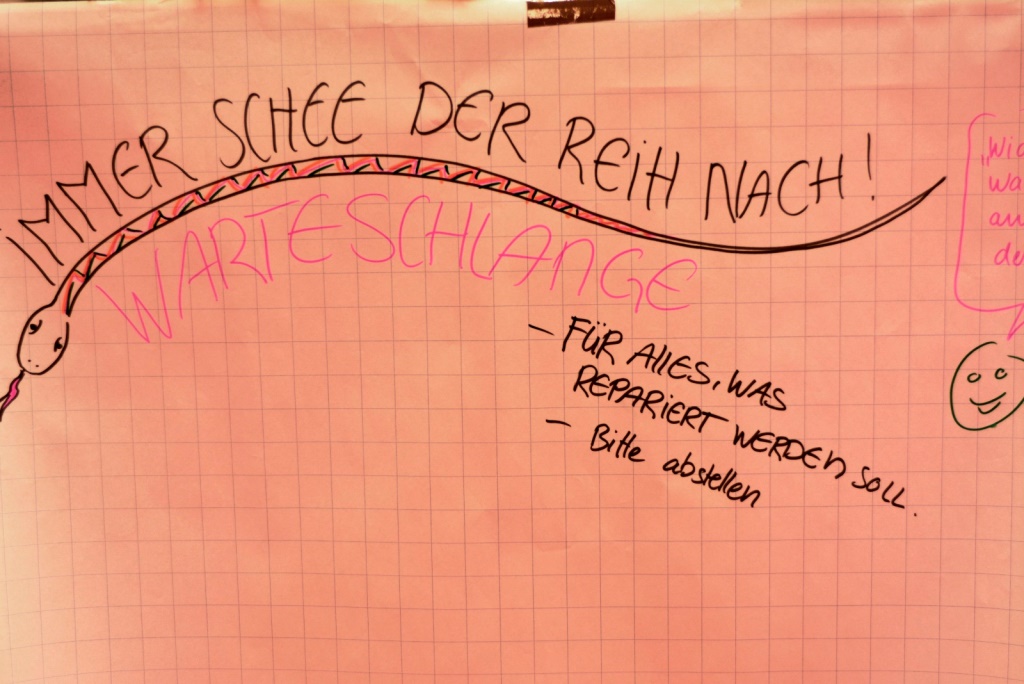 IMMER SCHEE DER REIH NACH!
WARTESCHLANGE
- FÜR ALLES, WAS
REPARIERT WERDEN SOLL.
- Bitte abstellen